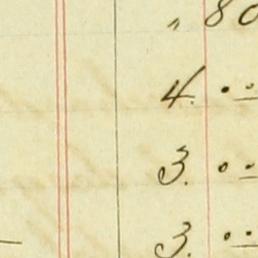 " 80
4. ..
3. ..
3. ..